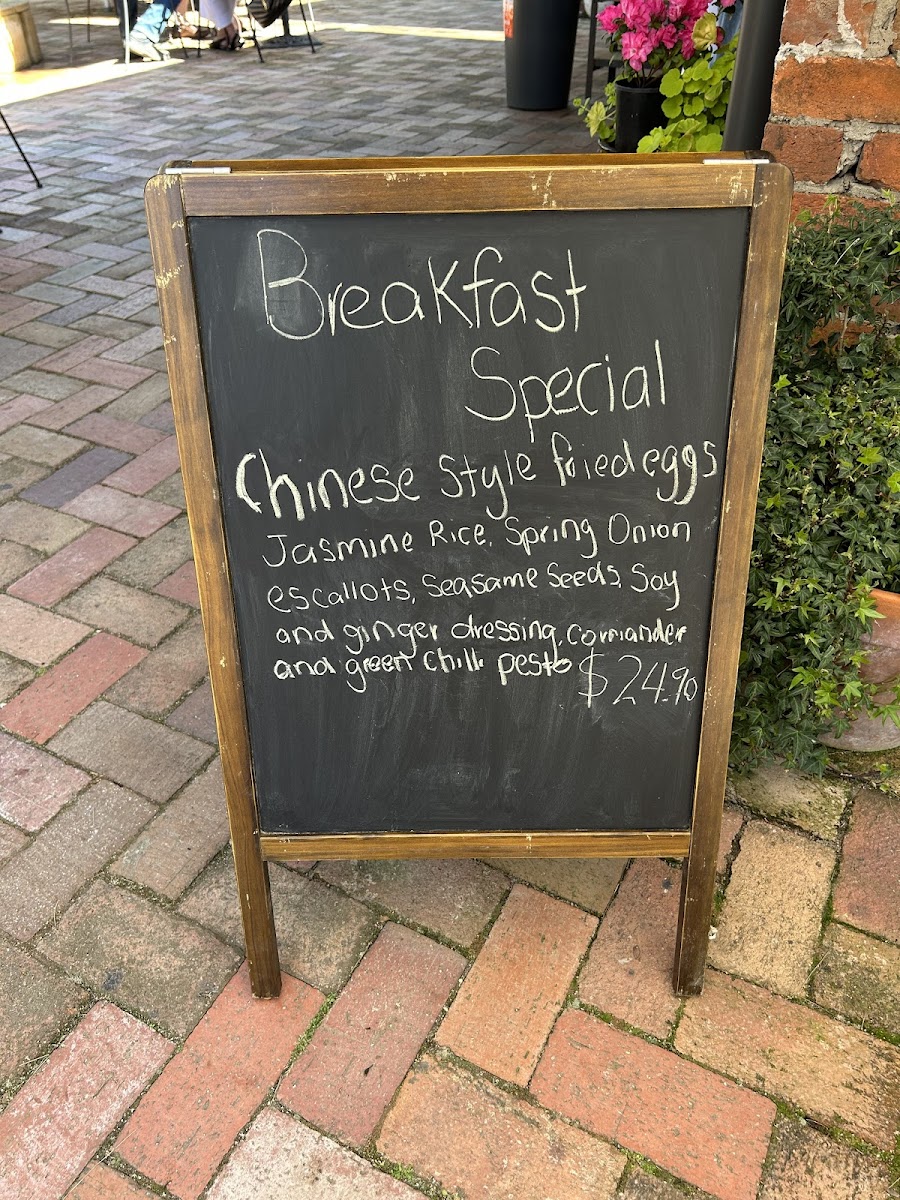 Breakfast
Special
Chinese Style fried eggs
Jasmine Rice, Spring Onion
escallots, Seasame Seeds, Soy
and ginger dressing, corriander
and green chilli pesto $24.90